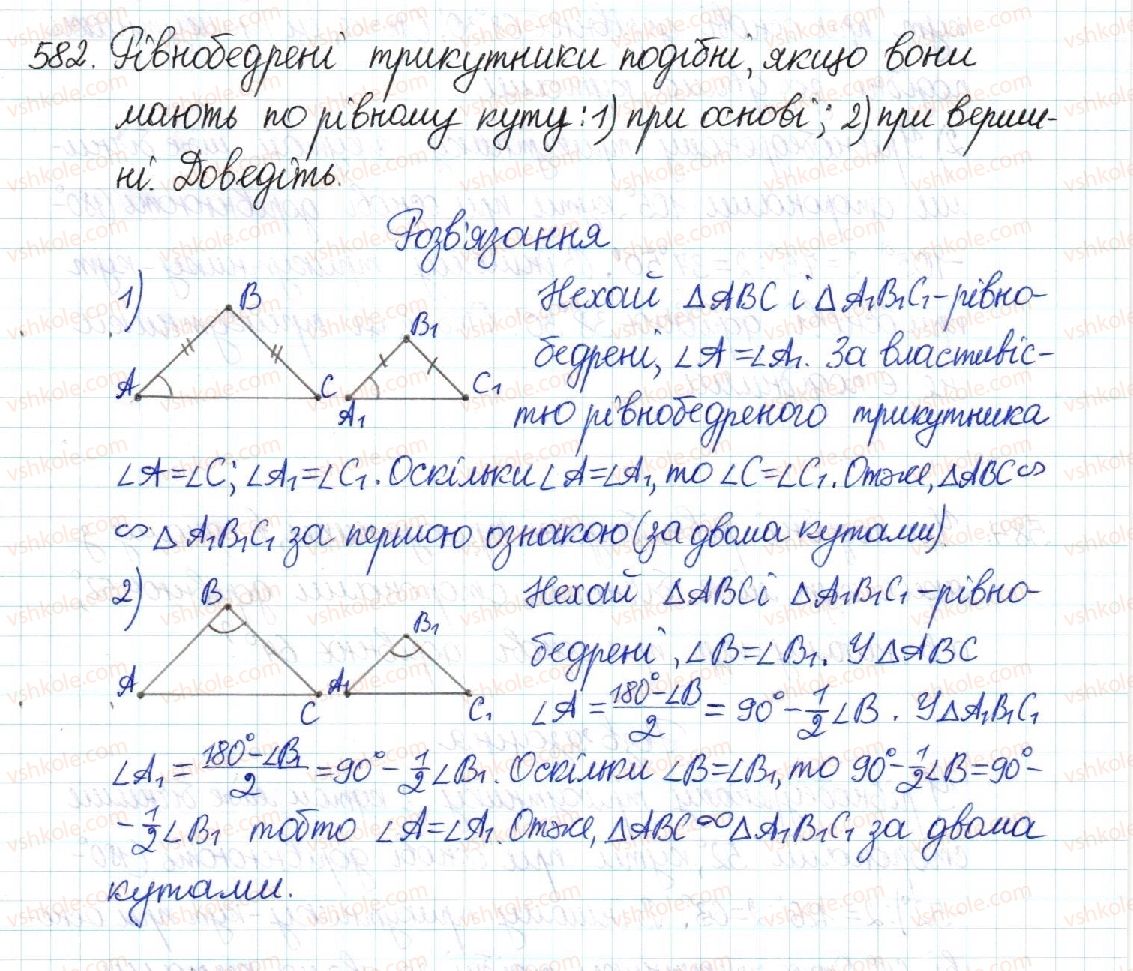 582. Рівнобедрені трикутники подібні, якщо вони
мають по рівному куту: 1) при основі; 2) при верши-
ні. Доведіть.
Розв'язання
1)
B
A
C
B₁
A₁
C₁
Нехай △ABC і △A₁B₁C₁ - рівно-
бедрені, ∠A = ∠A₁. За властивіс-
тю рівнобедреного трикутника
∠A = ∠C; ∠A₁ = ∠C₁. Оскільки ∠A = ∠A₁, то ∠C = ∠C₁. Отже, △ABC ∽
∽ △A₁B₁C₁ за першою ознакою (за двома кутами)
2)
B
A
C
B₁
A₁
C₁
Нехай △ABC і △A₁B₁C₁ - рівно-
бедрені, ∠B = ∠B₁. У △ABC
∠A = (180° - ∠B)/2 = 90° - 1/2 ∠B. У △A₁B₁C₁
∠A₁ = (180° - ∠B₁)/2 = 90° - 1/2 ∠B₁. Оскільки ∠B = ∠B₁, то 90° - 1/2 ∠B = 90° -
- 1/2 ∠B₁ тобто ∠A = ∠A₁. Отже, △ABC ∽ △A₁B₁C₁ за двома
кутами.
vshkole.com